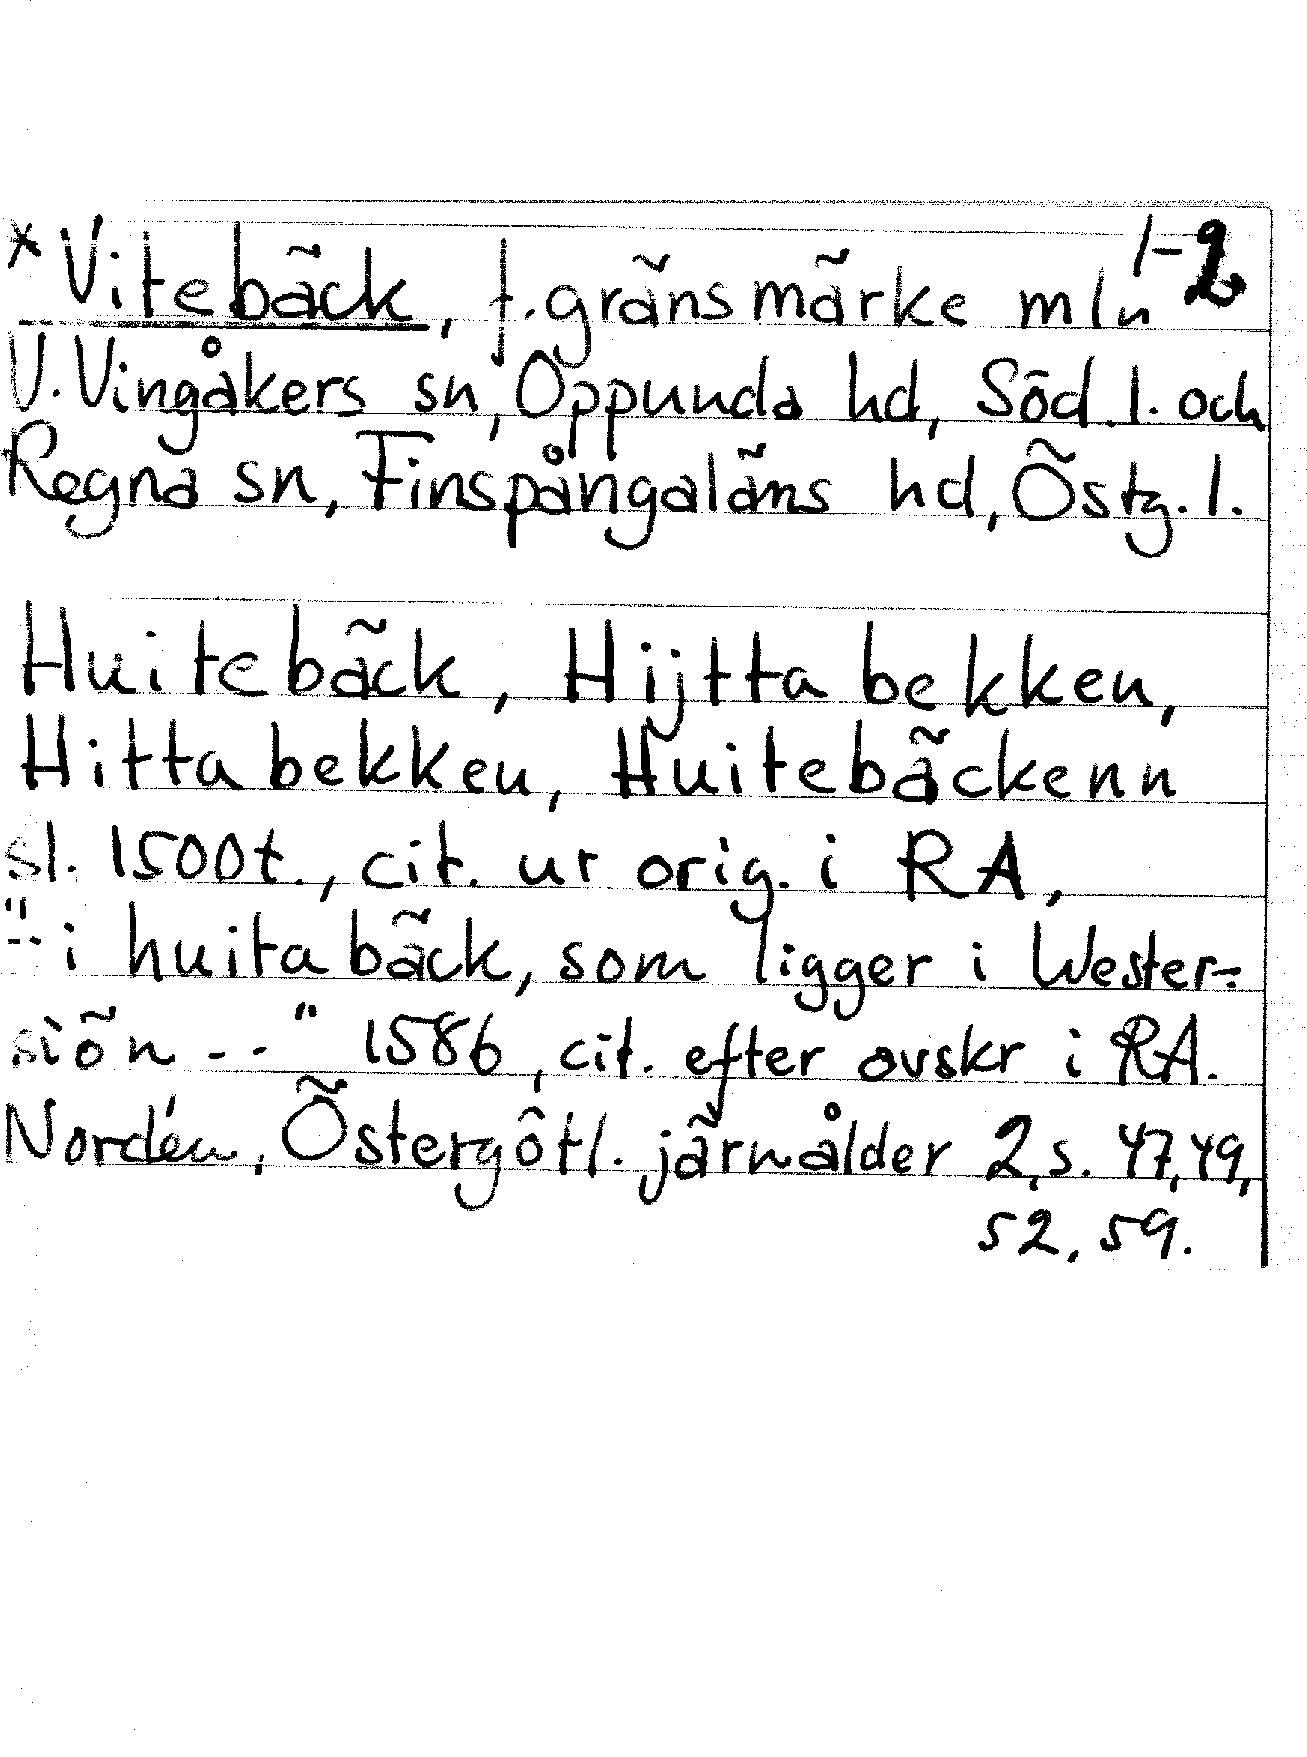 *Vitebäck, f. gränsmärke mln 1-2
V. Vingåkers sn, Oppunda hd, Söd. l. och
Regna sn, Finspångaläns hd, Östg. l.
Huitebäck, Hijtta bekken,
Hitta bekken, Huitebäckenn
sl. 1500t., cit. ur orig. i RA,
"-- i huita bäck, som ligger i Wester-
siön --" 1586, cit. efter avskr i RA.
Nordén, Östergötl. järnålder 2, s. 47, 49,
52, 59.